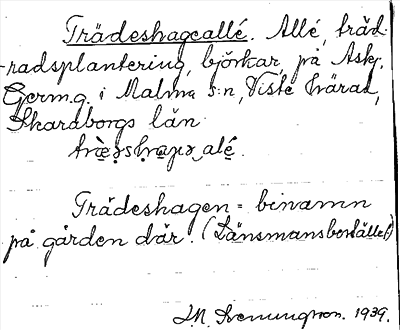 Trädeshagcallé. Allé, träd-
radsplantering, björkar, på Askg.
Germ.g. i Malma s:n, Viste härad,
Skaraborgs län.

Trädeshagen = binamn
på gården där. (Länsmansbostället)
J.N. 1939.